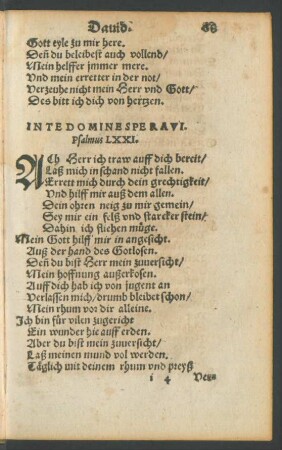 Dauid. 68
Gott eyle zu mir here.
Deñ du beleibest auch vollend/
Mein helffer jmmer mere.
Vnd mein erretter in der not/
Verzeuhe nicht mein Herr vnd Gott/
Des bitt ich dich von hertzen.
IN TE DOMINE SPERAVI.
Psalmus LXXI.
ACh Herr ich traw auff dich bereit/
Laß mich in schand nicht fallen.
Errett mich durch dein grechtigkeit/
Vnd hilff mir auß dem allen.
Dein ohren neig zu mir gemein/
Sey mir ein felß vnd starcker stein/
Dahin ich fliehen müge.
Mein Gott hilff mir in angesicht.
Auß der hand des Gotlosen.
Deñ du bist Herr mein zuuersicht/
Mein hoffnung außerkosen.
Auff dich hab ich von jugent an
Verlassen mich/drumb bleibet schon/
Mein rhum vor dir alleine.
Ich bin für vilen zugericht
Ein wunder hie auff erden.
Aber du bist mein zuuersicht/
Laß meinen mund vol werden.
Täglich mit deinem rhum vnd preyß
i 4 Ver=